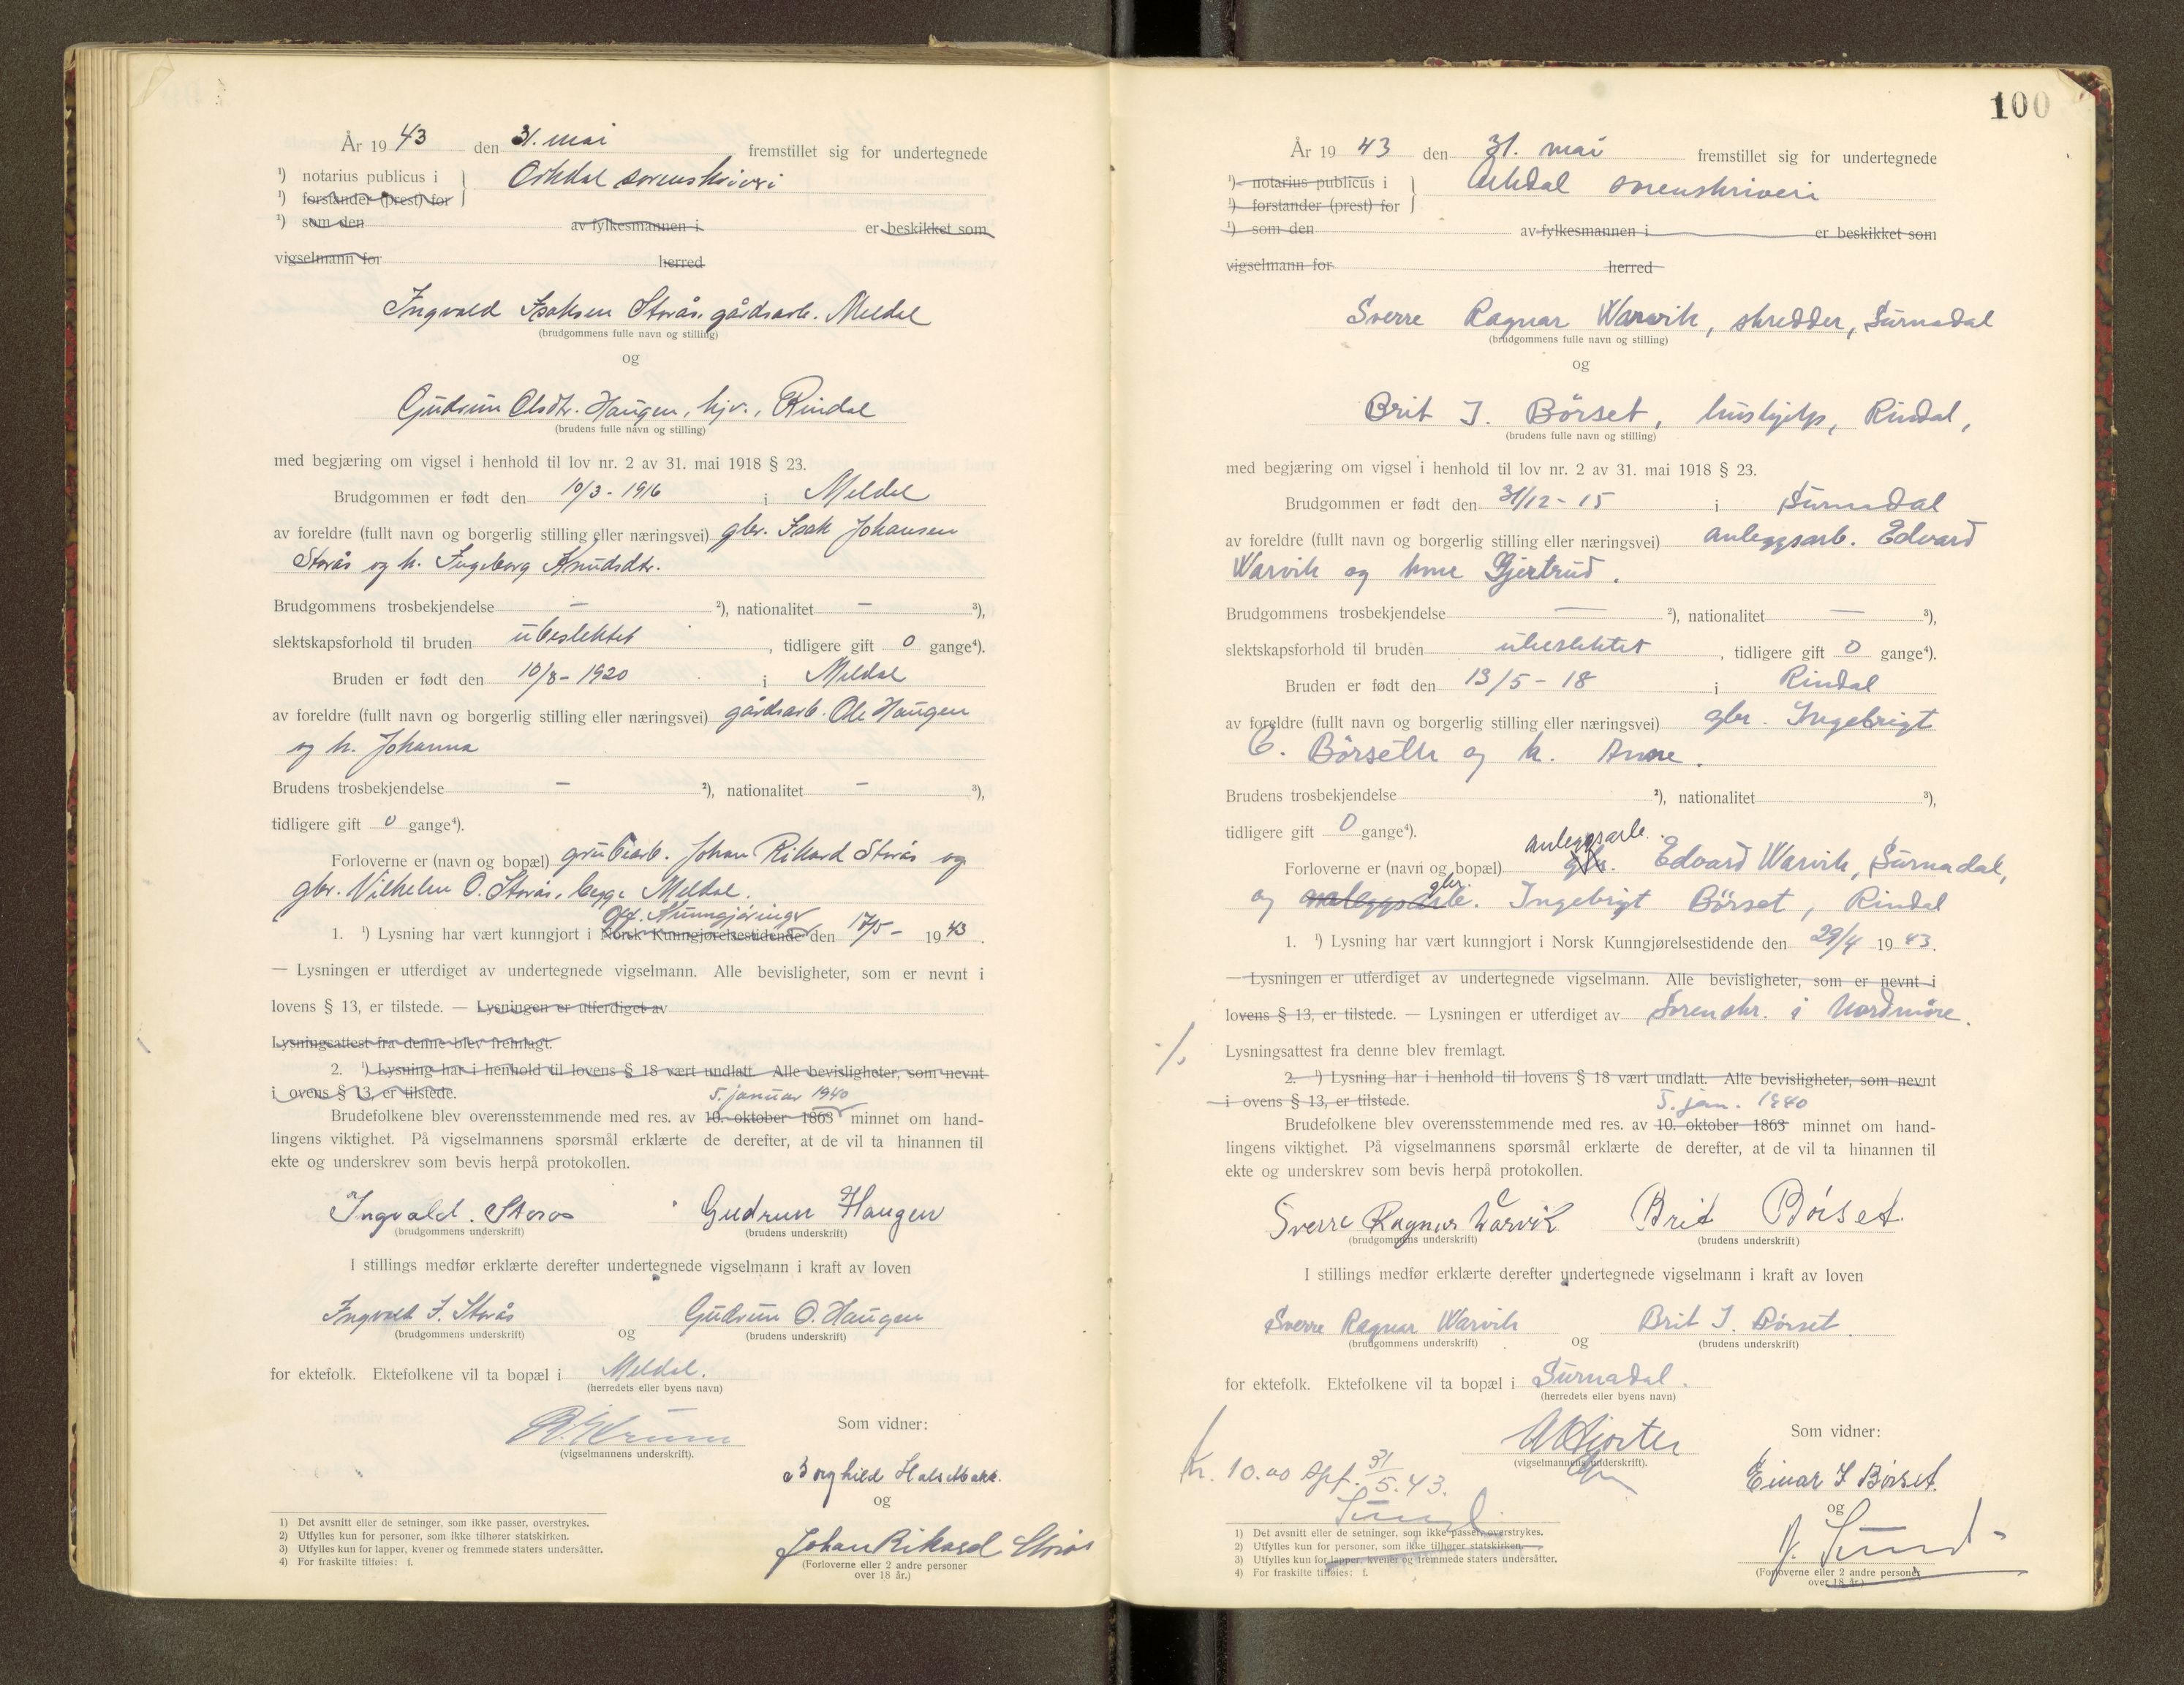 År 1943 den 31. mai fremstillet sig for undertegnede
¹) notarius publicus i
Orkdal sorenskriveri
¹) forstander (prest) for
¹) som den av fylkesmannen i er beskikket som
vigselmann for herred
Ingvald Isaksen Storås, gårdsarb. Meldal
(brudgommens fulle navn og stilling)
og
Gudrun Olsdtr. Haugen, hjv., Rindal
(brudens fulle navn og stilling)
med begjæring om vigsel i henhold til lov nr. 2 av 31. mai 1918 § 23.
Brudgommen er født den 10/3 - 1916 i Meldal
av foreldre (fullt navn og borgerlig stilling eller næringsvei) gbr. Isak Johansen
Storås og h. Ingeborg Knudsdtr.
Brudgommens trosbekjendelse — ²), nationalitet — ³),
slektskapsforhold til bruden ubeslektet, tidligere gift 0 gange⁴).
Bruden er født den 10/8 - 1920 i Meldal
av foreldre (fullt navn og borgerlig stilling eller næringsvei) gårdsarb. Ole Haugen
og h. Johanna
Brudens trosbekjendelse — ²), nationalitet — ³),
tidligere gift 0 gange⁴).
Forloverne er (navn og bopæl) grubearb. Johan Rikard Storås og
gbr. Vilhelm O. Storås, begge Meldal.
Off. Kunngjøringer
1. ¹) Lysning har vært kunngjort i Norsk Kunngjørelsestidende den 17/5 - 1943.
— Lysningen er utferdiget av undertegnede vigselmann. Alle bevisligheter, som er nevnt i
lovens § 13, er tilstede. — Lysningen er utferdiget av
Lysningsattest fra denne blev fremlagt.
2. ¹) Lysning har i henhold til lovens § 18 vært undlatt. Alle bevisligheter, som nevnt
i ovens § 13, er tilstede.
5. januar 1940
Brudefolkene blev overensstemmende med res. av 10. oktober 1863 minnet om hand-
lingens viktighet. På vigselmannens spørsmål erklærte de derefter, at de vil ta hinannen til
ekte og underskrev som bevis herpå protokollen.
Ingvald. Storås Gudrun Haugen
(brudgommens underskrift) (brudens underskrift)
I stillings medfør erklærte derefter undertegnede vigselmann i kraft av loven
Ingvald I. Storås og Gudrun O. Haugen
(brudgommens underskrift) (brudens underskrift)
for ektefolk. Ektefolkene vil ta bopæl i Meldal.
(herredets eller byens navn)
Som vidner:
(vigselmannens underskrift).
Borghild
og
Johan Rikard Storås
(Forloverne eller 2 andre personer
over 18 år.)
1) Det avsnitt eller de setninger, som ikke passer, overstrykes.
2) Utfylles kun for personer, som ikke tilhører statskirken.
3) Utfylles kun for lapper, kvener og fremmede staters undersåtter.
4) For fraskilte tilføies: f.
100
År 1943 den 31. mai fremstillet sig for undertegnede
¹) notarius publicus i
Orkdal sorenskriveri
¹) forstander (prest) for
¹) som den av fylkesmannen i er beskikket som
vigselmann for herred
Sverre Ragnar Warvik, skredder, Surnadal
(brudgommens fulle navn og stilling)
og
Brit I. Børset, hushjelp, Rindal,
(brudens fulle navn og stilling)
med begjæring om vigsel i henhold til lov nr. 2 av 31. mai 1918 § 23.
Brudgommen er født den 31/12 - 15 i Surnadal
av foreldre (fullt navn og borgerlig stilling eller næringsvei) anleggsarb. Edvard
Warvik og hme Gjertrud.
Brudgommens trosbekjendelse — ²), nationalitet — ³),
slektskapsforhold til bruden ubeslektet, tidligere gift 0 gange⁴).
Bruden er født den 13/5 - 18 i Rindal
av foreldre (fullt navn og borgerlig stilling eller næringsvei) gbr. Ingebrigt
E. Børseth og h. Anne.
Brudens trosbekjendelse ²), nationalitet ³),
tidligere gift 0 gange⁴).
anleggsarb.
Forloverne er (navn og bopæl) gbr. Edvard Warvik, Surnadal,
gbr.
og anleggsarb. Ingebrigt Børset, Rindal
1. ¹) Lysning har vært kunngjort i Norsk Kunngjørelsestidende den 29/4 1943.
— Lysningen er utferdiget av undertegnede vigselmann. Alle bevisligheter, som er nevnt i
lovens § 13, er tilstede. — Lysningen er utferdiget av Sorenskr. i Nordmøre.
Lysningsattest fra denne blev fremlagt.
2. ¹) Lysning har i henhold til lovens § 18 vært undlatt. Alle bevisligheter, som nevnt
i ovens § 13, er tilstede.
5. jan. 1940
Brudefolkene blev overensstemmende med res. av 10. oktober 1863 minnet om hand-
lingens viktighet. På vigselmannens spørsmål erklærte de derefter, at de vil ta hinannen til
ekte og underskrev som bevis herpå protokollen.
Sverre Ragnar Warvik Brit Børset.
(brudgommens underskrift) (brudens underskrift)
I stillings medfør erklærte derefter undertegnede vigselmann i kraft av loven
Sverre Ragnar Warvik og Brit I. Børset.
(brudgommens underskrift) (brudens underskrift)
for ektefolk. Ektefolkene vil ta bopæl i Surnadal.
(herredets eller byens navn)
Som vidner:
(vigselmannens underskrift).
Kr. 10.00 31/5.43.
Einar I Børset.
og
J. Sund
(Forloverne eller 2 andre personer
over 18 år.)
1) Det avsnitt eller de setninger, som ikke passer, overstrykes.
2) Utfylles kun for personer, som ikke tilhører statskirken.
3) Utfylles kun for lapper, kvener og fremmede staters undersåtter.
4) For fraskilte tilføies: f.